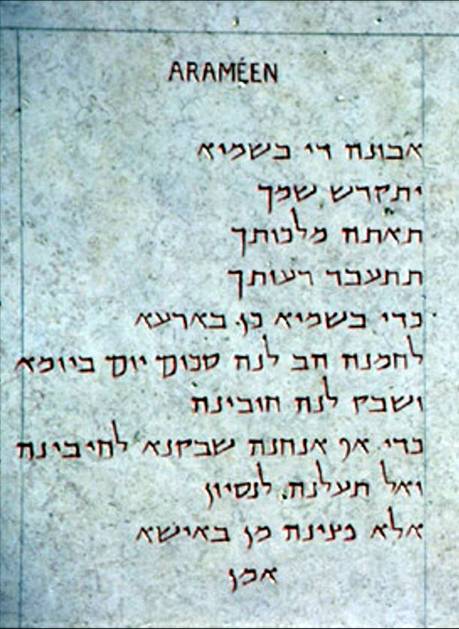 ARAMÉEN
אבונה די בשמיא
יתקדש שמך
תאתה מלכותך
תתעבד רעותך
כדי בשמיא כן בארעא
לחמנה הב לנה סכוך יום ביומא
ושבק לנה חובינה
כדי אף אנחנה שבקנא לחיבינה
ואל תעלנה לנסיון
אלא פצינה מן באישא
אמן